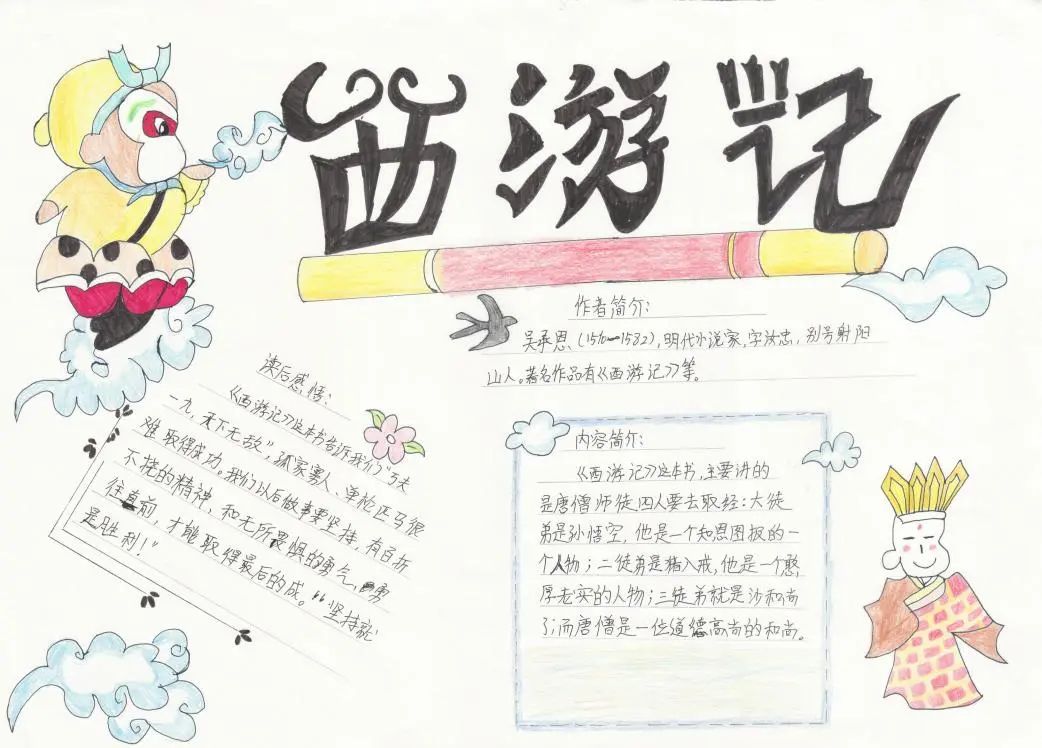 西游记
作者简介:
吴承恩 (1510—1582), 明代小说家, 字汝忠, 别号射阳
山人。著名作品有《西游记》等。
读后感悟:
《西游记》这本书告诉我们“万夫
一九, 天下无敌”, 孤家寡人、单枪匹马很
难取得成功。我们以后做事要坚持, 有百折
不挠的精神, 和无所畏惧的勇气, 勇
往直前, 才能取得最后的成。“坚持就
是胜利!”
内容简介:
《西游记》这本书, 主要讲的
是唐僧师徒四人要去取经: 大徒
弟是孙悟空, 他是一个知恩图报的一
个人物; 二徒弟是猪入戒, 他是一个憨
厚老实的人物; 三徒弟就是沙和尚
了; 而唐僧是一位道德高尚的和尚。